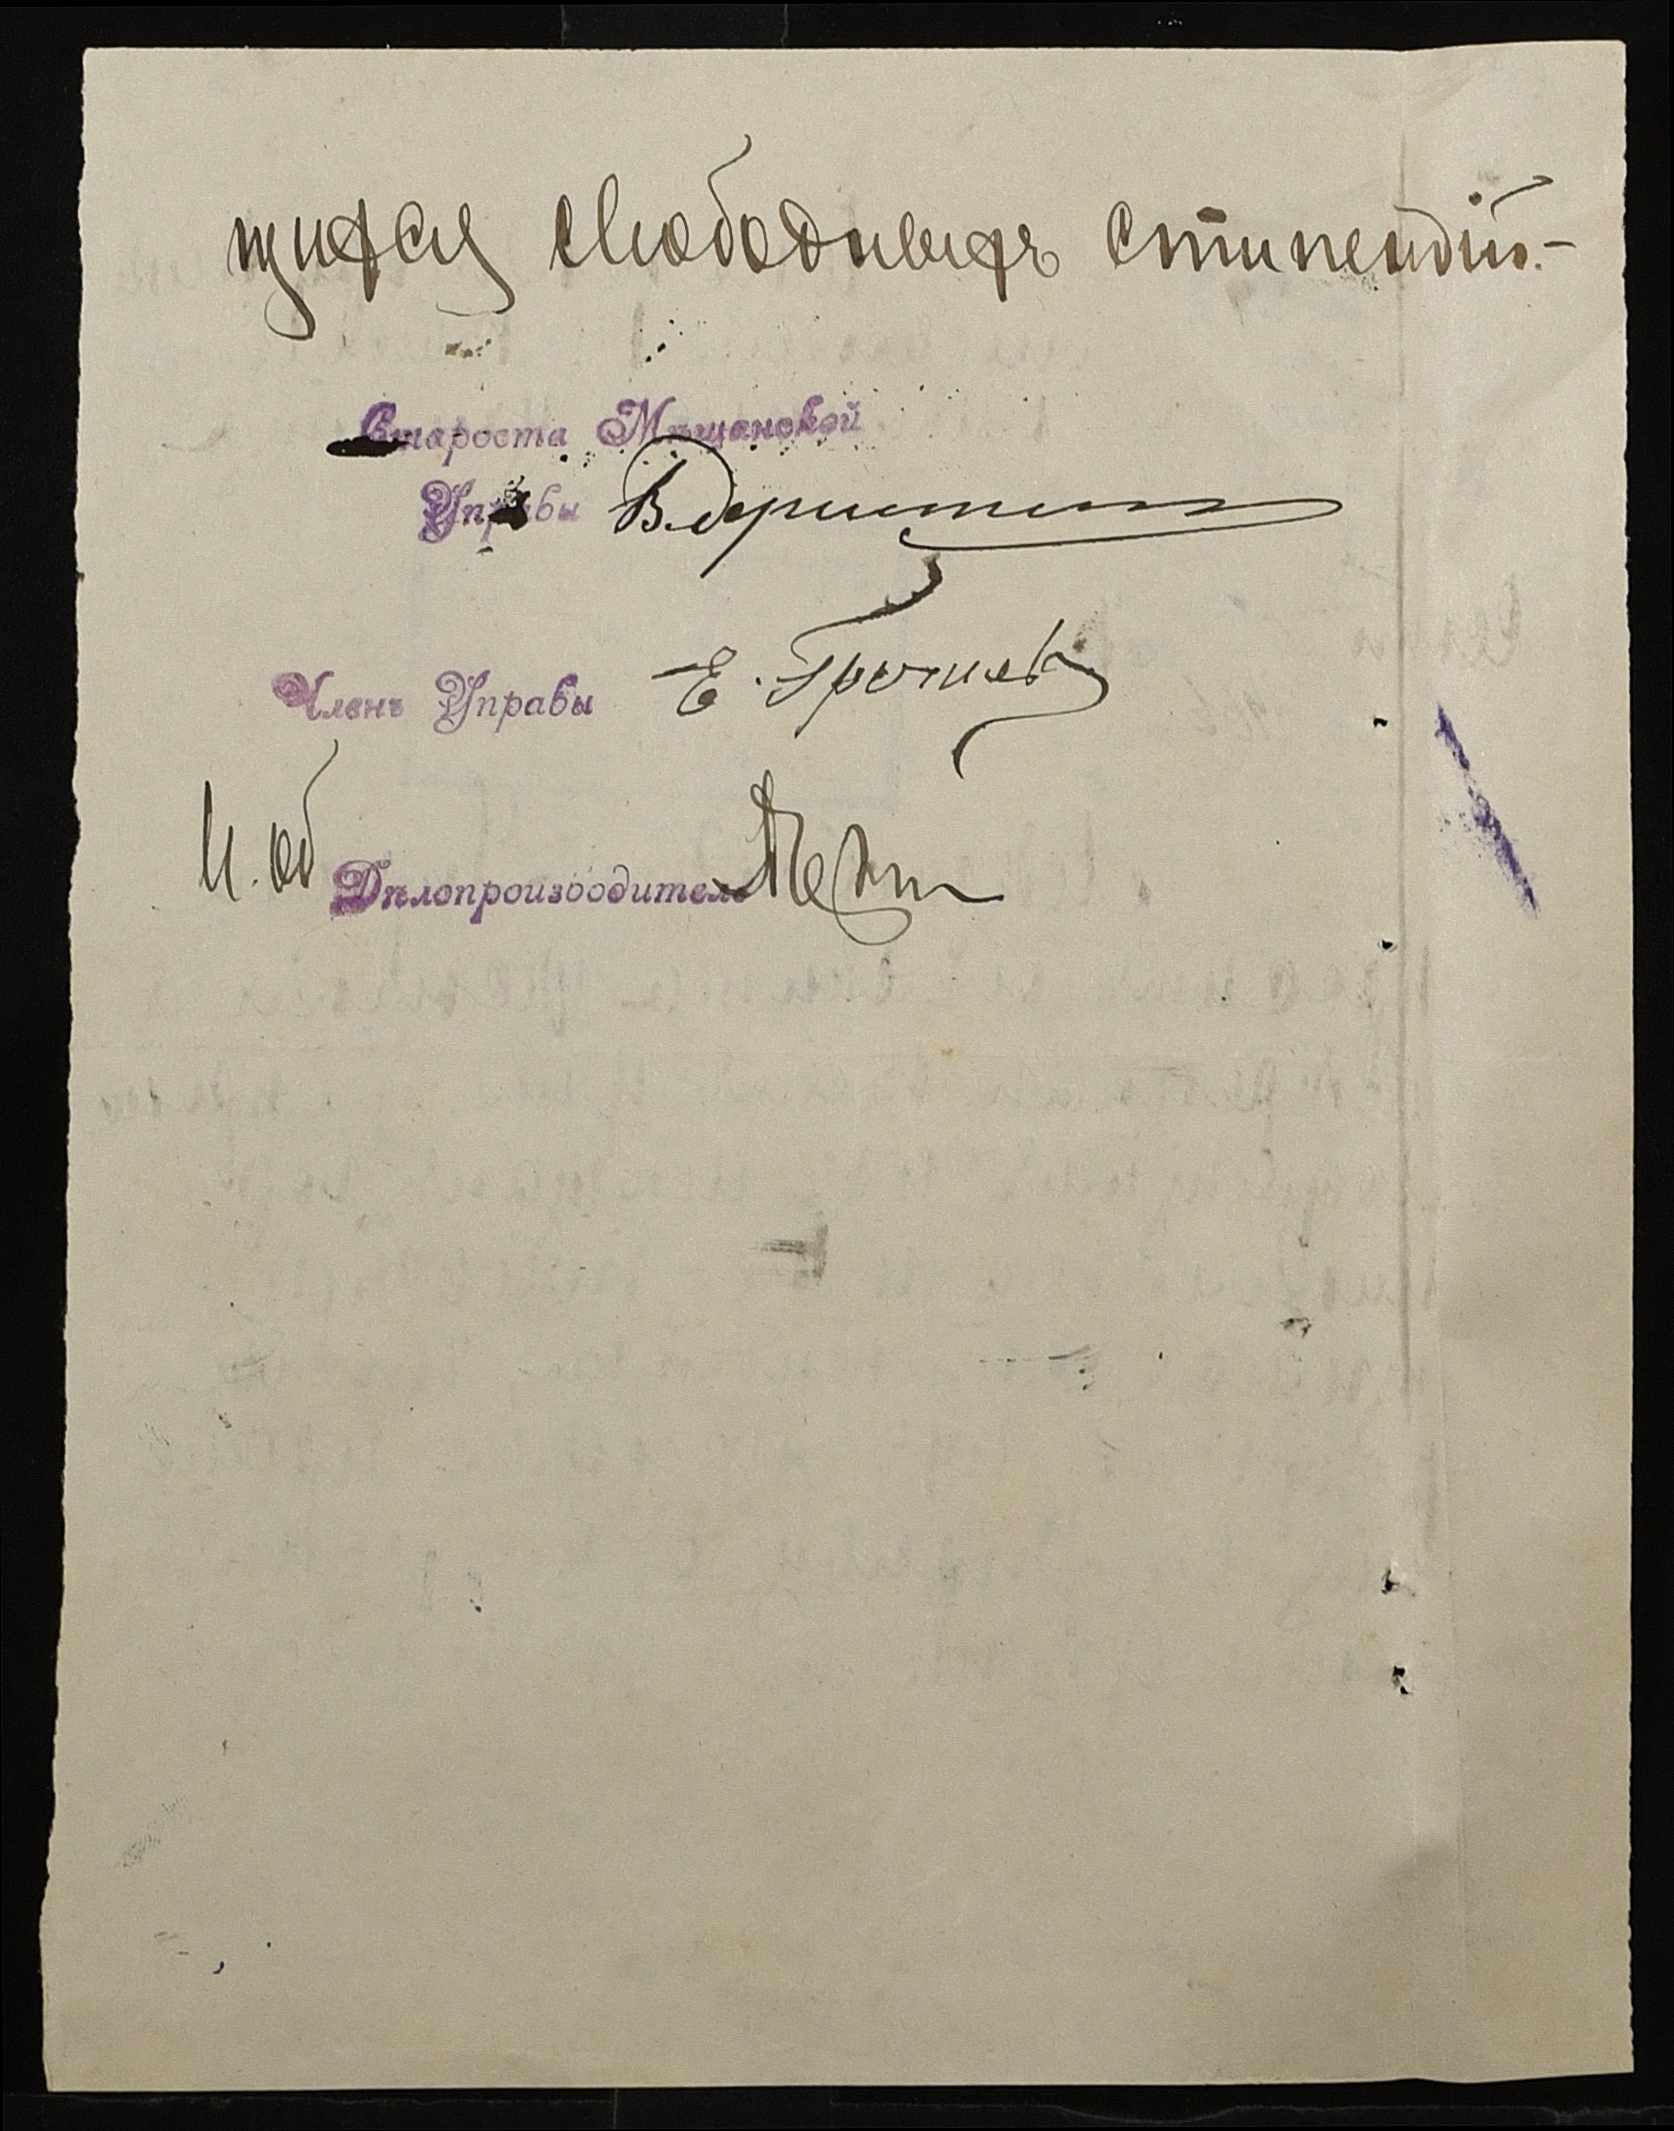 щихся свободныхъ стипендій.-
Староста Мѣщанской
Управы
Членъ Управы Е.
И. об
Дѣлопроизводитель